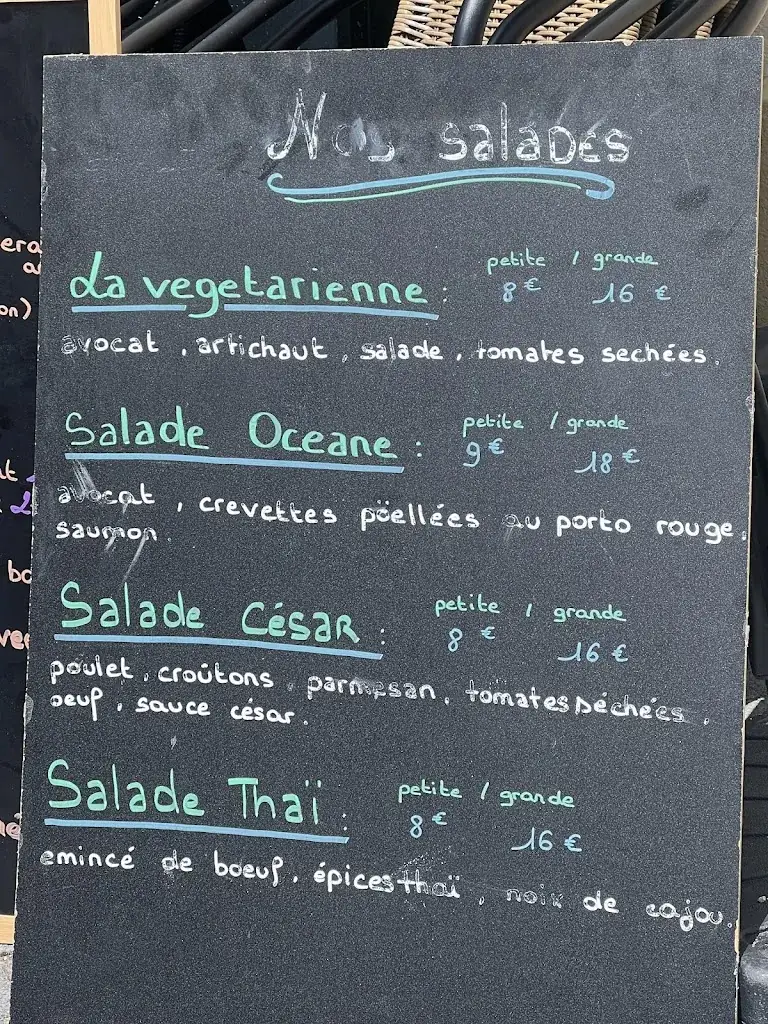 Nos salades
La vegetarienne : petite / grande
8 € 16 €
avocat , artichaut , salade , tomates sechées .
Salade Oceane : petite / grande
9 € 18 €
avocat , crevettes pöellées au porto rouge .
saumon .
Salade César : petite / grande
8 € 16 €
poulet . croûtons . parmesan . tomates séchées .
oeuf . sauce césar .
Salade Thaï : petite / grande
8 € 16 €
emincé de boeuf . épices thaï , noix de cajou .